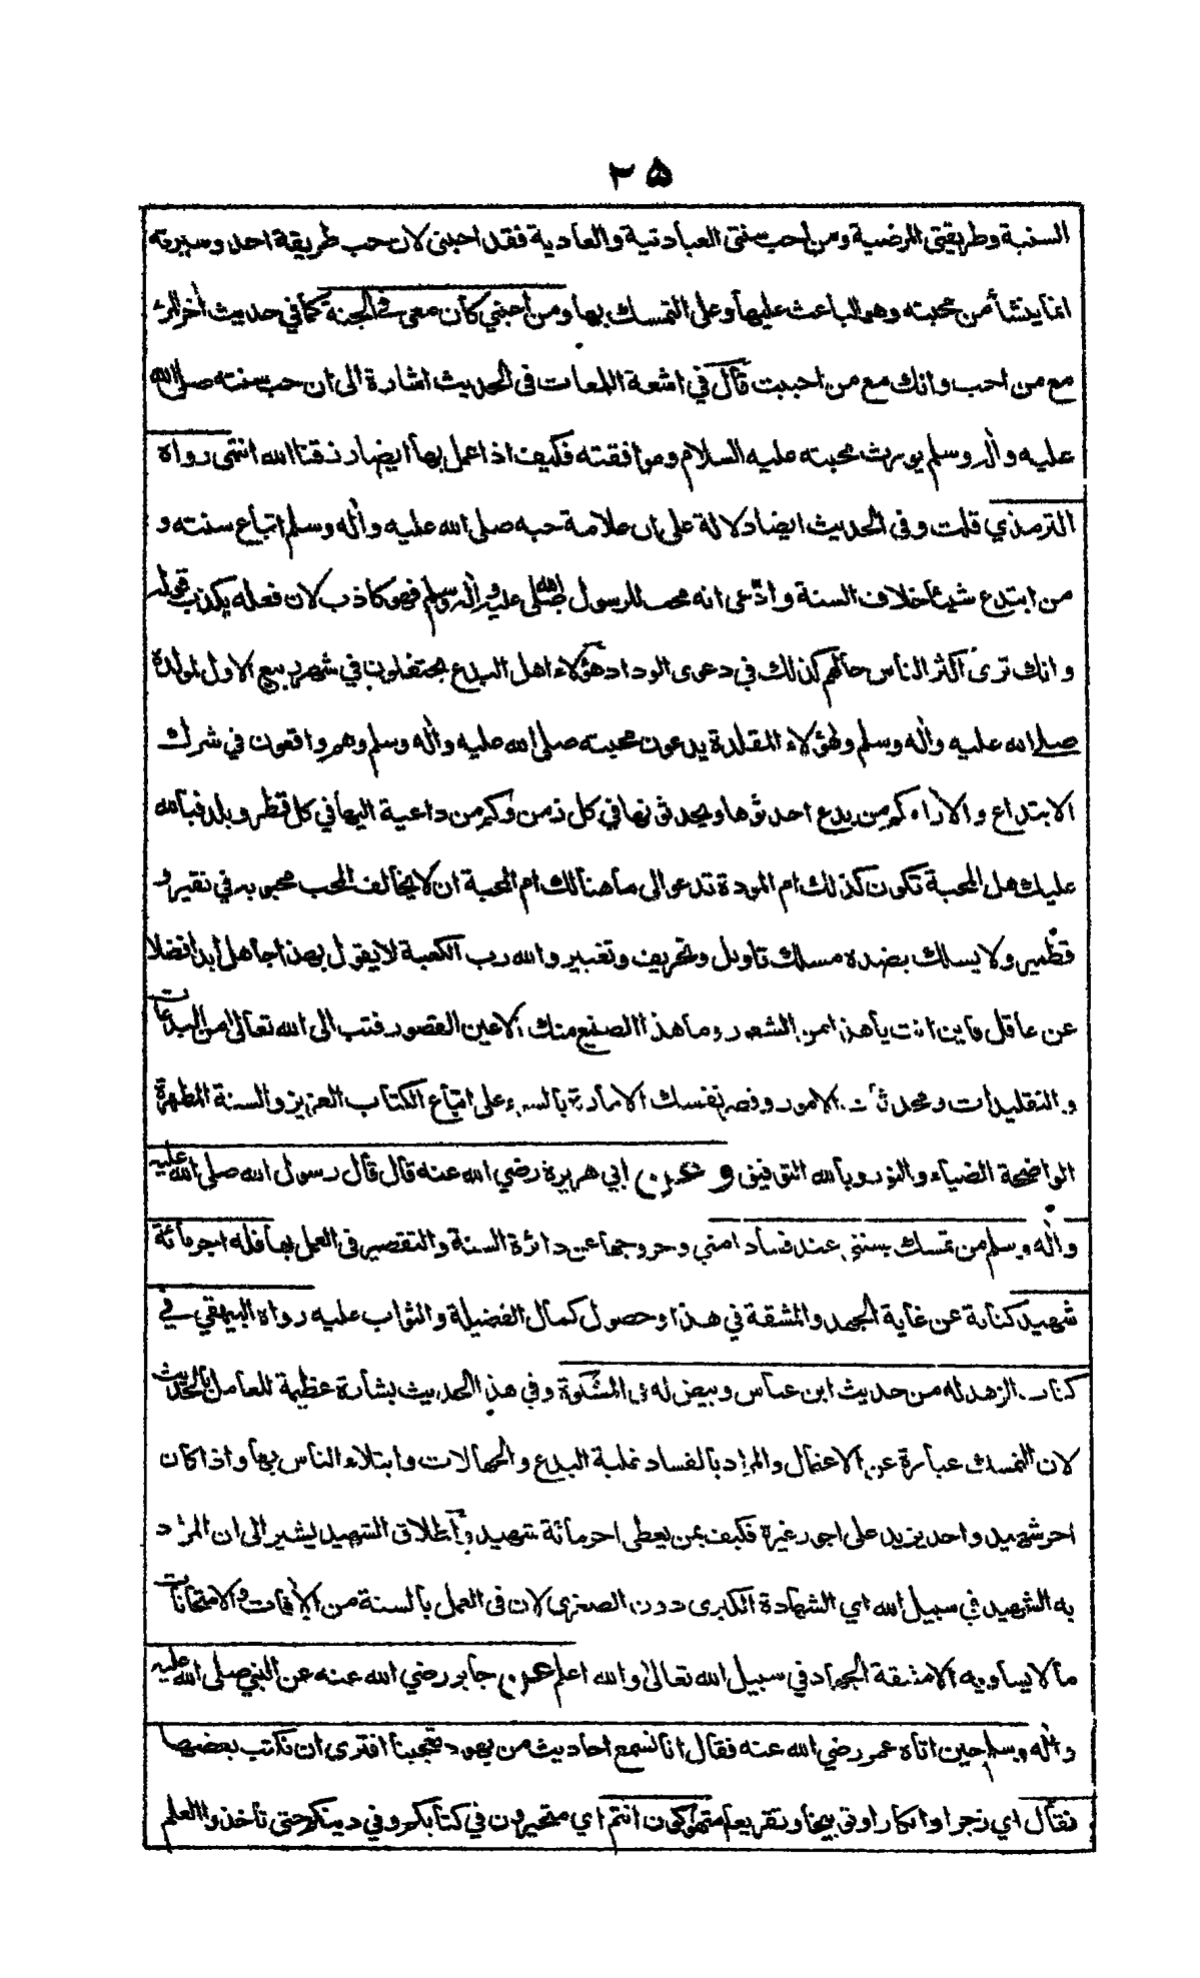 ۲۵
السنية وطريقتى المرضية ومن احب سنتى العبادتية والعادية فقد احبنى لان حب طريقة احد وسيرته
انما ينشأ من محبته وهو الباعث عليها وعلى التمسك بها ومن احبني كان معى في الجنة كما في حديث أخر المرء
مع من احب وانك مع من احببت قال في اشعة اللمعات فى الحديث اشارة الى ان حب سنته صلى الله
عليه وأله وسلم يورث محبته عليه السلام وموافقته فكيف اذا عمل بها ايضا رزقنا الله انتهى رواه
الترمذي قلت وفى الحديث ايضا دلالة على ان علامة حبه صلى الله عليه وأله وسلم اتباع سنته و
من ابتدع شيئا خلاف السنة وادّعى انه محب للرسول صلى الله عليه وأله وسلم فهو كاذب لان فعله يكذب قوله
وانك ترى اكثر الناس حالهم كذلك في دعوى الوداد هؤلاء اهل البدع يحتفلون في شهر ربيع الاول لمولده
صلى الله عليه وأله وسلم وهؤلاء المقلدة يدعون محبته صلى الله عليه وأله وسلم وهم واقعون في شرك
الابتداع والأراء كم من بدع احدثوها ويحدثونها في كل زمن وكم من داعية اليها في كل قطر وبلد فبالله
عليك هل المحبة تكون كذلك ام المودة تدعو الى ما هنالك ام المحبة ان لا يخالف المحب محبوبه في نقير و
قطمير ولا يسلك بضده مسلك تاويل وتحريف وتغيير والله رب الكعبة لا يقول بهذا جاهل ابدا فضلا
عن عاقل فاين انت يا هذا من الشعور وما هذا الصنيع منك الا عين القصور فتب الى الله تعالى من البدعات
والتقليدات ومحدثات الامور وفه نفسك الامارة بالسوء على اتباع الكتاب العزيز والسنة المطهرة
الواضحة الضياء والنور وبالله التوفيق وعن ابي هريرة رضي الله عنه قال قال رسول الله صلى الله عليه
وأله وسلم من تمسك بسنتي عند فساد امتي وخروجها عن دائرة السنة والتقصير فى العمل بها فله اجر مائة
شهيد كناية عن غاية الجهد والمشقة في هذا وحصول كمال الفضيلة والثواب عليه رواه البيهقي في
كتاب الزهد له من حديث ابن عباس وبيض له فى المشكوة وفي هذا الحديث بشارة عظيمة للعامل بالحديث
لان التمسك عبارة عن الاعتمال والمراد بالفساد غلبة البدع والجهالات وابتلاء الناس بها واذا كان
اجر شهيد واحد يزيد على اجور غيره فكيف بمن يعطى اجر مائة شهيد واطلاق الشهيد يشير الى ان المراد
به الشهيد في سبيل الله اي الشهادة الكبرى دون الصغرى لان فى العمل بالسنة من الأفات والامتحانات
ما لا يساويه الا مشقة الجهاد في سبيل الله تعالى والله اعلم عن جابر رضي الله عنه عن النبي صلى الله عليه
وأله وسلم حين اتاه عمر رضي الله عنه فقال انا نسمع احاديث من يهود تعجبنا افترى ان نكتب بعضها
فقال اي زجرا وانكارا وتوبيخا وتقريعا متهوكون انتم اي متحيرون في كتابكم وفي دينكم حتى تأخذوا العلم